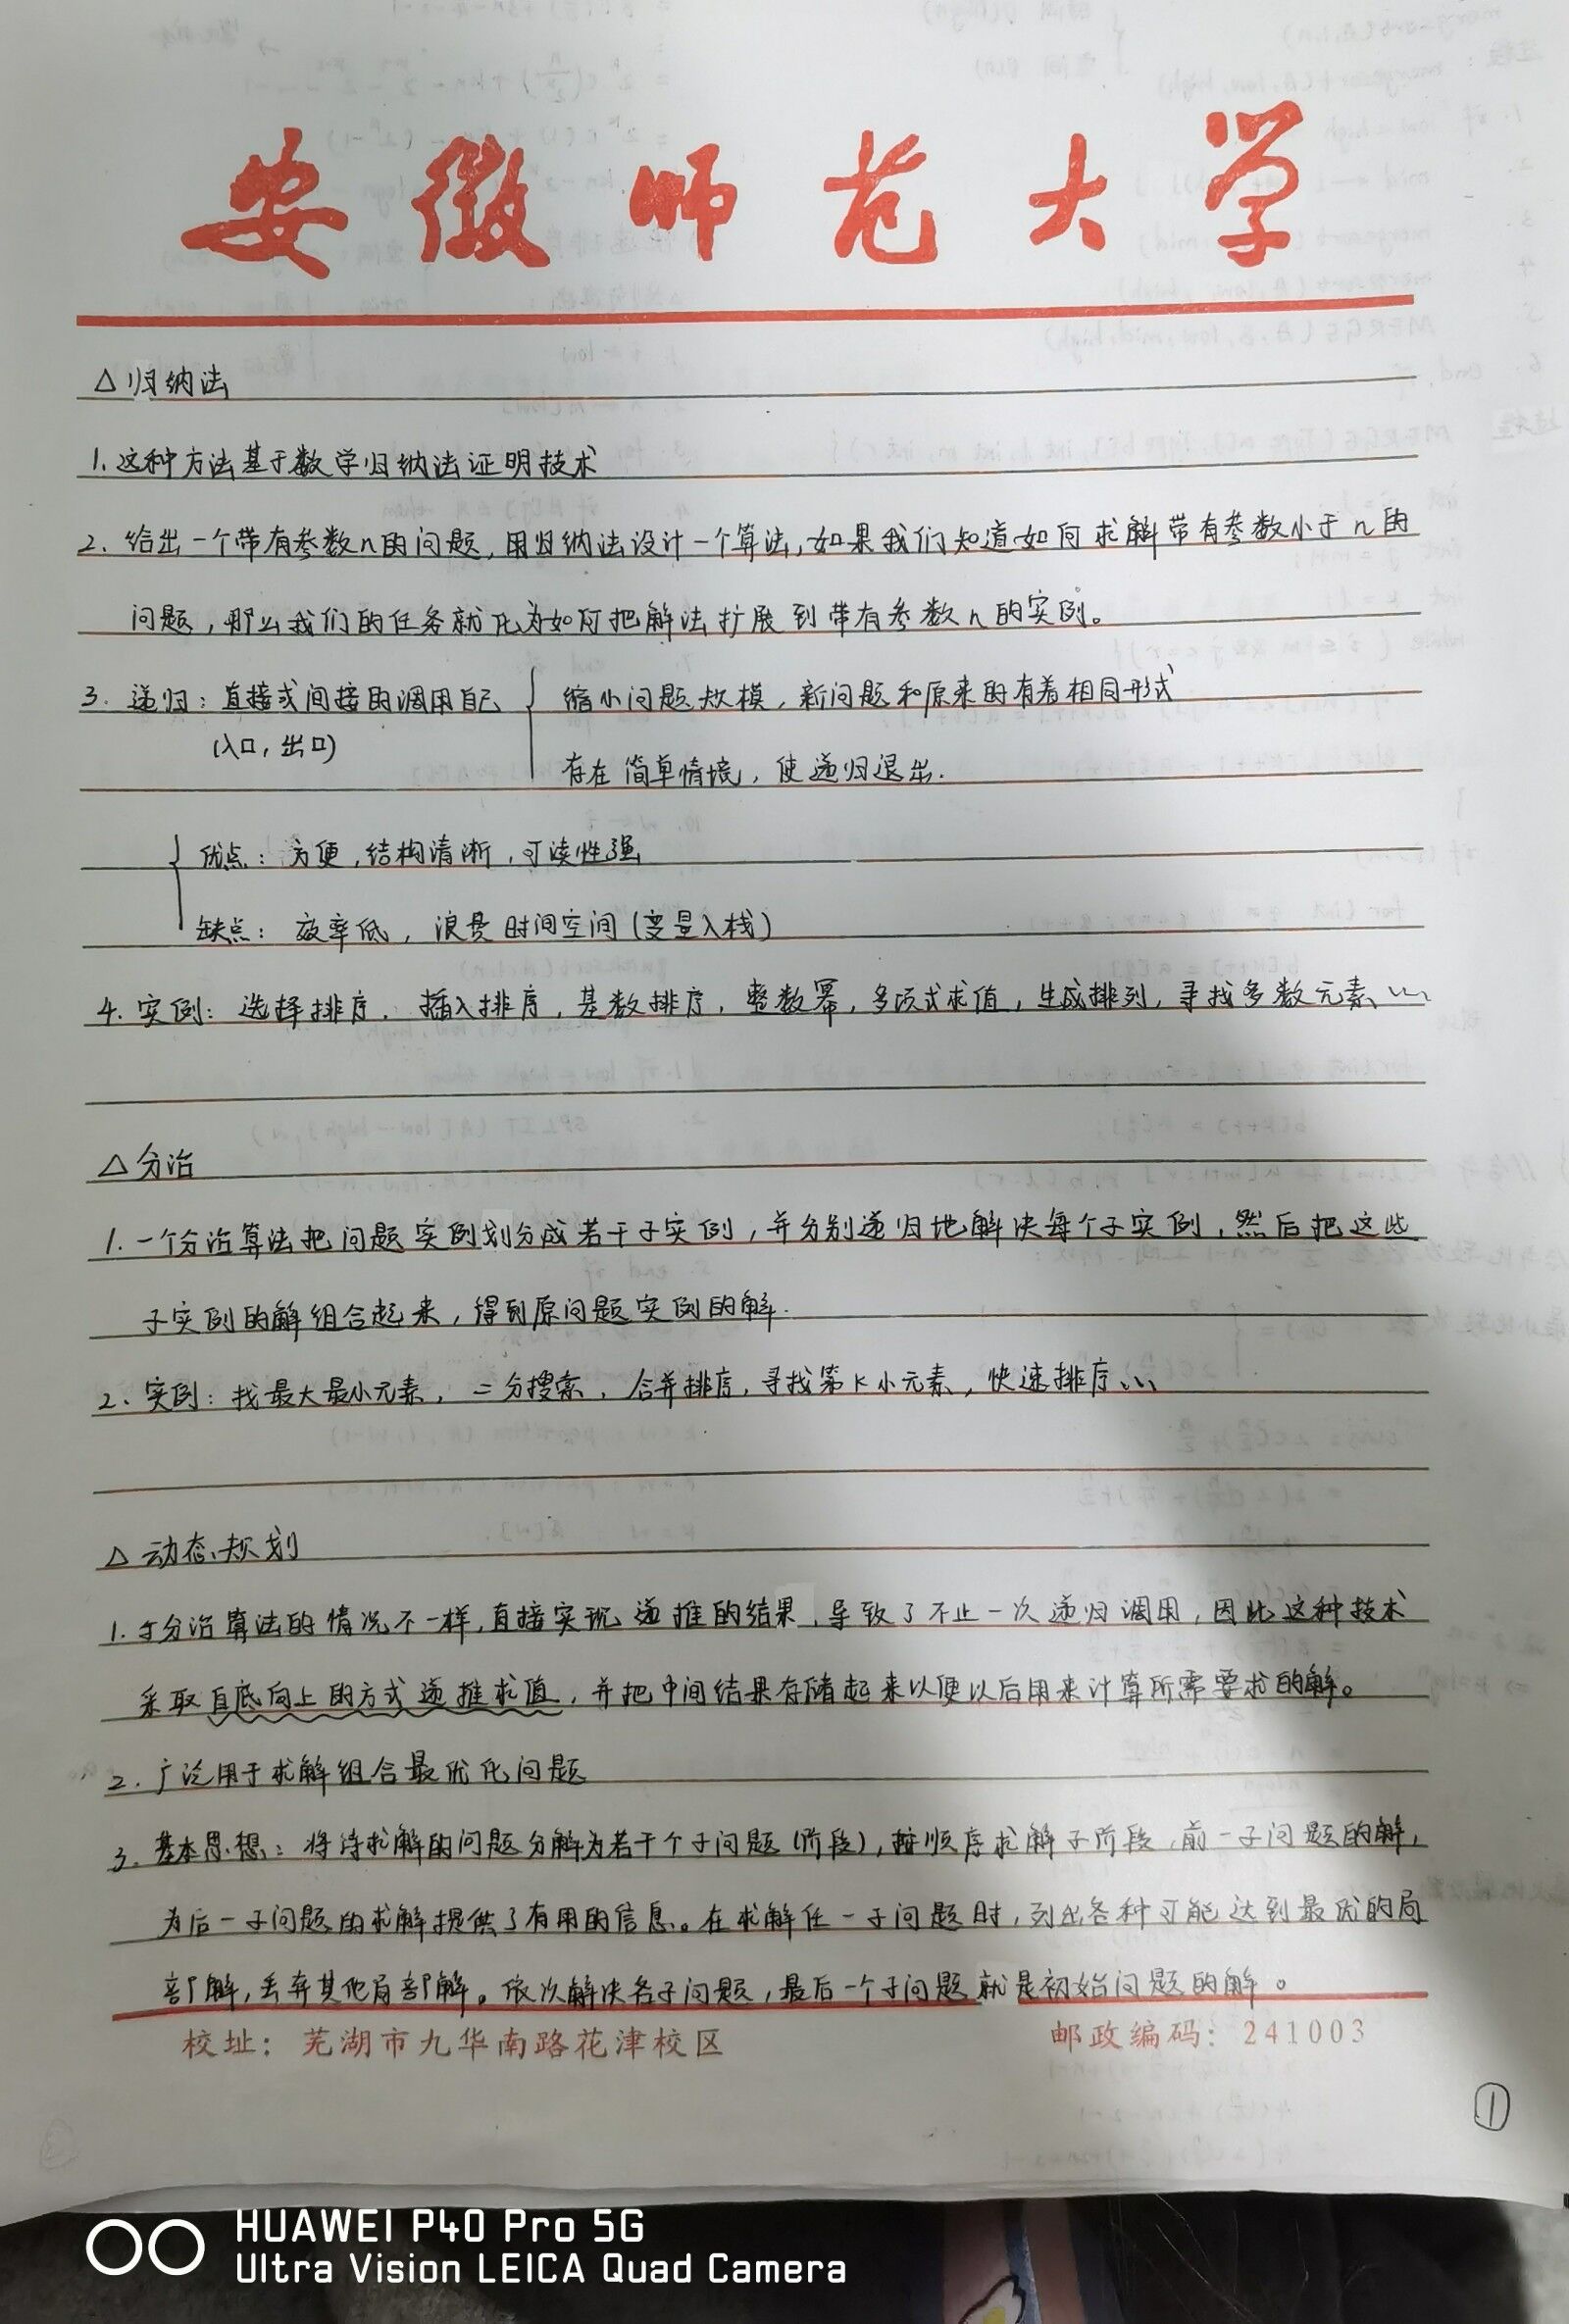 安徽师范大学
△归纳法
1.这种方法基于数学归纳法证明技术
2.给出一个带有参数n的问题,用归纳法设计一个算法,如果我们知道如何求解带有参数小于n的
问题,那么我们的任务就化为如何把解法扩展到带有参数n的实例。
3.递归:直接或间接的调用自己 { 缩小问题规模,新问题和原来的有着相同形式
(入口,出口)
存在简单情境,使递归退出.
{ 优点:方便,结构清晰,可读性强
缺点:效率低,浪费时间空间(变量入栈)
4.实例:选择排序、插入排序,基数排序,整数幂,多项式求值,生成排列,寻找多数元素、…
△分治
1.一个分治算法把问题实例划分成若干子实例,并分别递归地解决每个子实例,然后把这些
子实例的解组合起来,得到原问题实例的解.
2、实例:找最大最小元素,二分搜索,合并排序,寻找第k小元素,快速排序、…
△动态规划
1.与分治算法的情况不一样,直接实现递推的结果,导致了不止一次递归调用,因此这种技术
采取自底向上的方式递推求值,并把中间结果存储起来以便以后用来计算所需要求的解。
2.广泛用于求解组合最优化问题
3.基本思想:将待求解的问题分解为若干个子问题(阶段),按顺序求解子阶段,前一子问题的解,
为后一子问题的求解提供了有用的信息。在求解任一子问题时,列出各种可能达到最优的局
部解,丢弃其他局部解。依次解决各子问题,最后一个子问题就是初始问题的解。
校址:芜湖市九华南路花津校区 邮政编码:241003
①
HUAWEI P40 Pro 5G
Ultra Vision LEICA Quad Camera